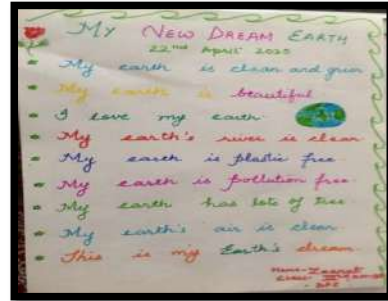 My New Dream Earth
22nd April 2025
My earth is clean and green
My earth is beautiful
I love my earth
My earth's river is clean
My earth is plastic free
My earth is pollution free
My earth has lots of tree
My earth's air is clean
This is my Earth's dream
Name - Zeenat
Class -